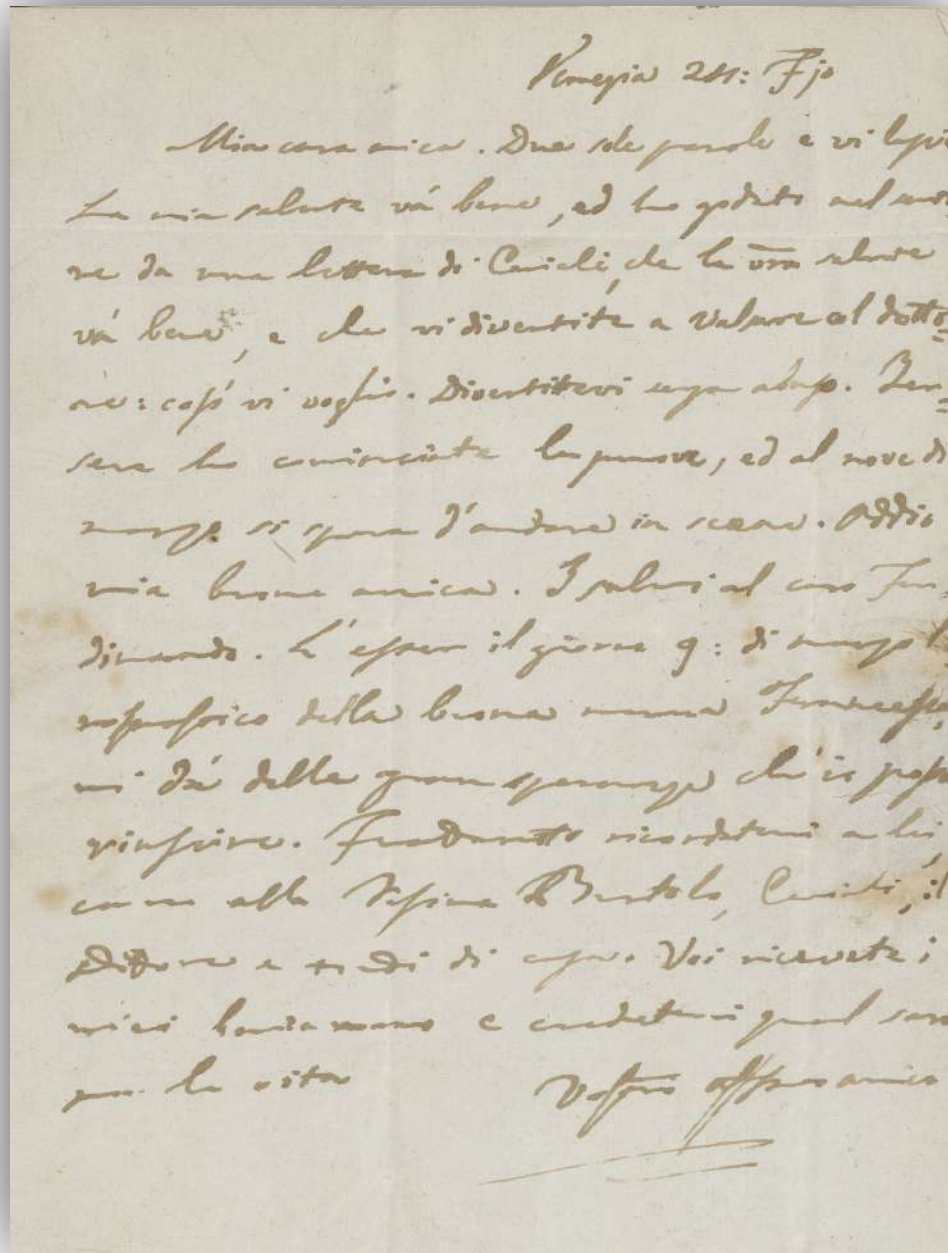 Venezia 28: Fjo
Mia cara amica. Due sole parole e vi
La mia salute vá bene, ed ho goduto nel
re da una lettera di che la vra salute
vá bene, e che vi divertite a al dotto=
re: cosí vi voglio. Divertitevi Jer=
sera ho cominciate le prove, ed al nove di
marzo si spera d'andare in scena. Addio
mia buona amica. I saluti al caro Fer=
dinando. L'esser il giorno 9: di marzo l'
della buona Francesca,
mi dá delle gran speranze ch'io possa
riuscire. Frattanto ricordatemi a lei,
come alla , il
e di casa. Voi ricevete i
miei e credetemi qual sarò
per la vita Vostro affmo amico